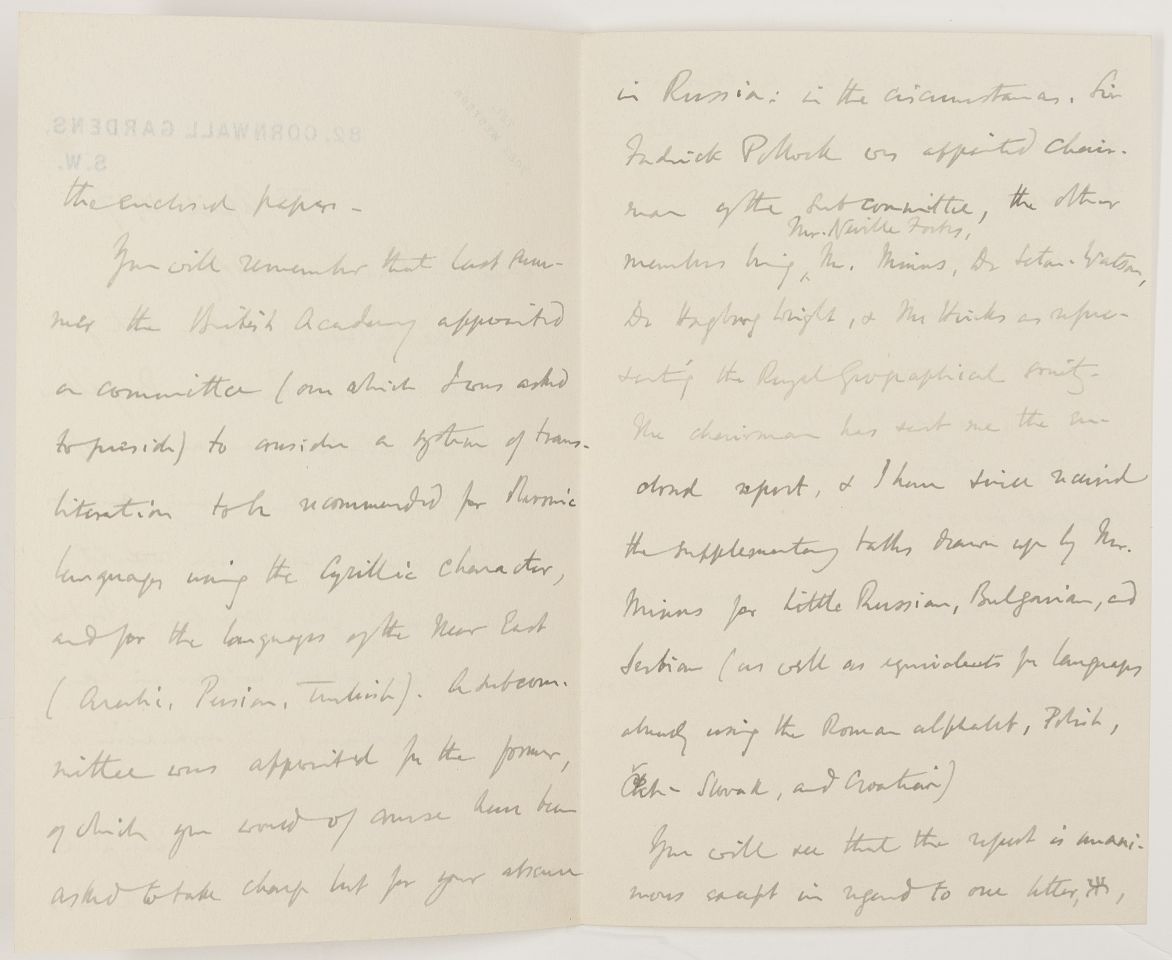 82, CORNWALL GARDENS,
S.W.
the enclosed papers –
You will remember that last sum-
mer the British Academy appointed
a committee (over which I was asked
to preside) to consider a system of trans-
literation to be recommended for Slavonic
languages using the Cyrillic character,
and for the languages of the Near East
(Arabic, Persian, Turkish). A subcom-
mittee was appointed for the former,
of which you would of course have been
asked to take charge but for your absence
in Russia: in the circumstances, Sir
Frederick Pollock was appointed Chair-
man of the Subcommittee, the other
Mr. Neville Forbes,
members being Mr. Minns, Dr Seton-Watson,
Dr Hagberg Wright, & Mr Hinks as repre-
senting the Royal Geographical Society.
The chairman has sent me the en-
closed report, & I have since received
the supplementary tables drawn up by Mr.
Minns for Little Russian, Bulgarian, and
Serbian (as well as equivalents for languages
already using the Roman alphabet, Polish,
Čech-Slovak, and Croatian)
You will see that the report is unani-
mous except in regard to one letter, ы,